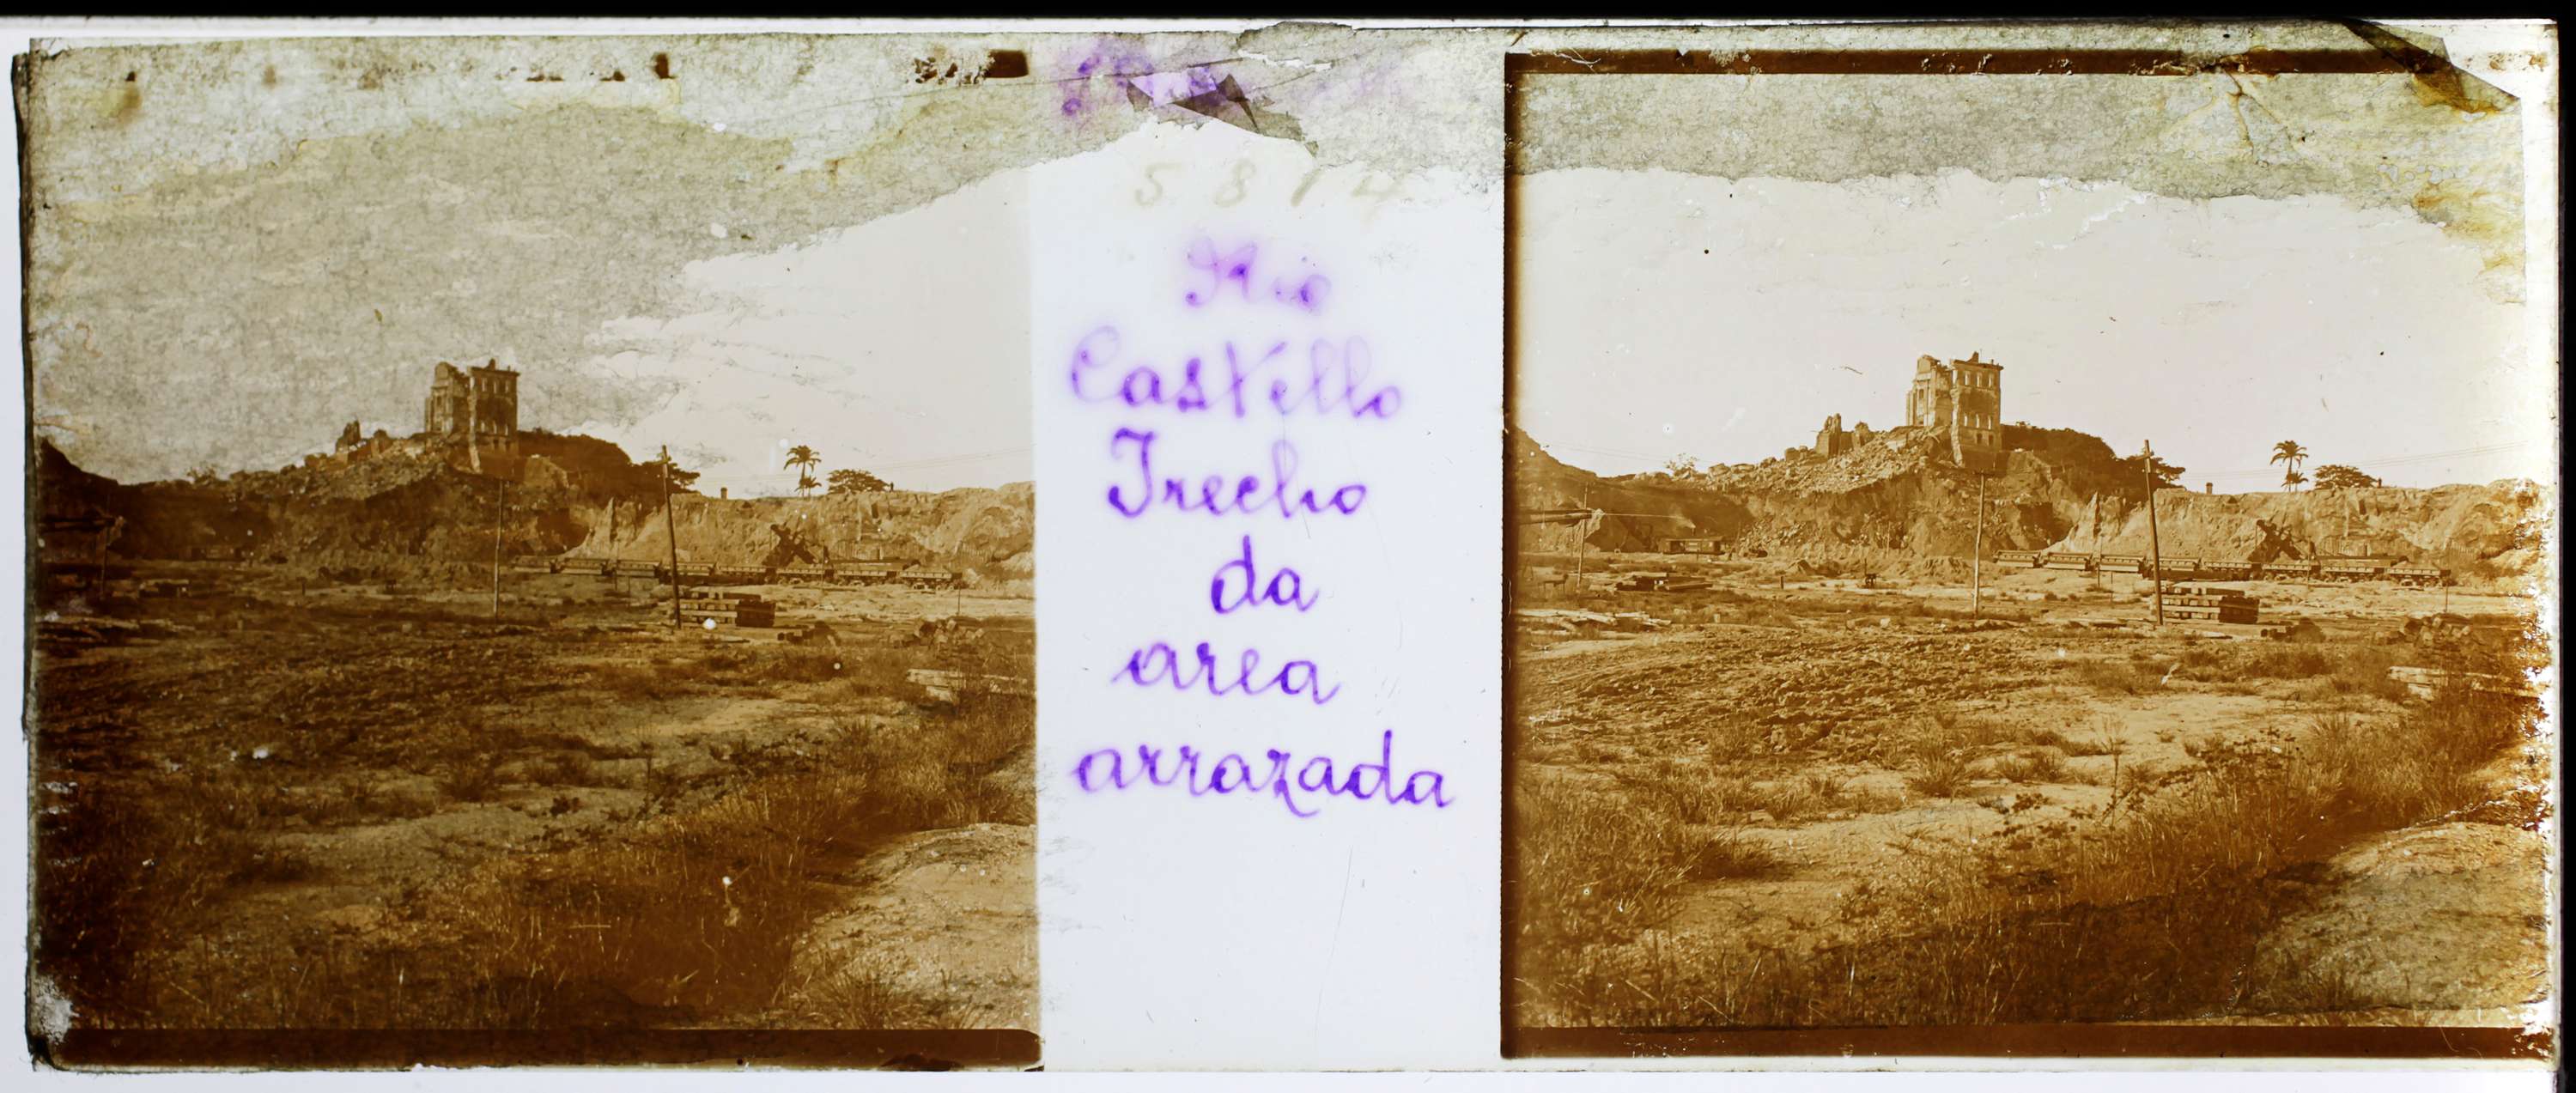 5 8 1 4
Rio
Castello
Trecho
da
area
arrazada